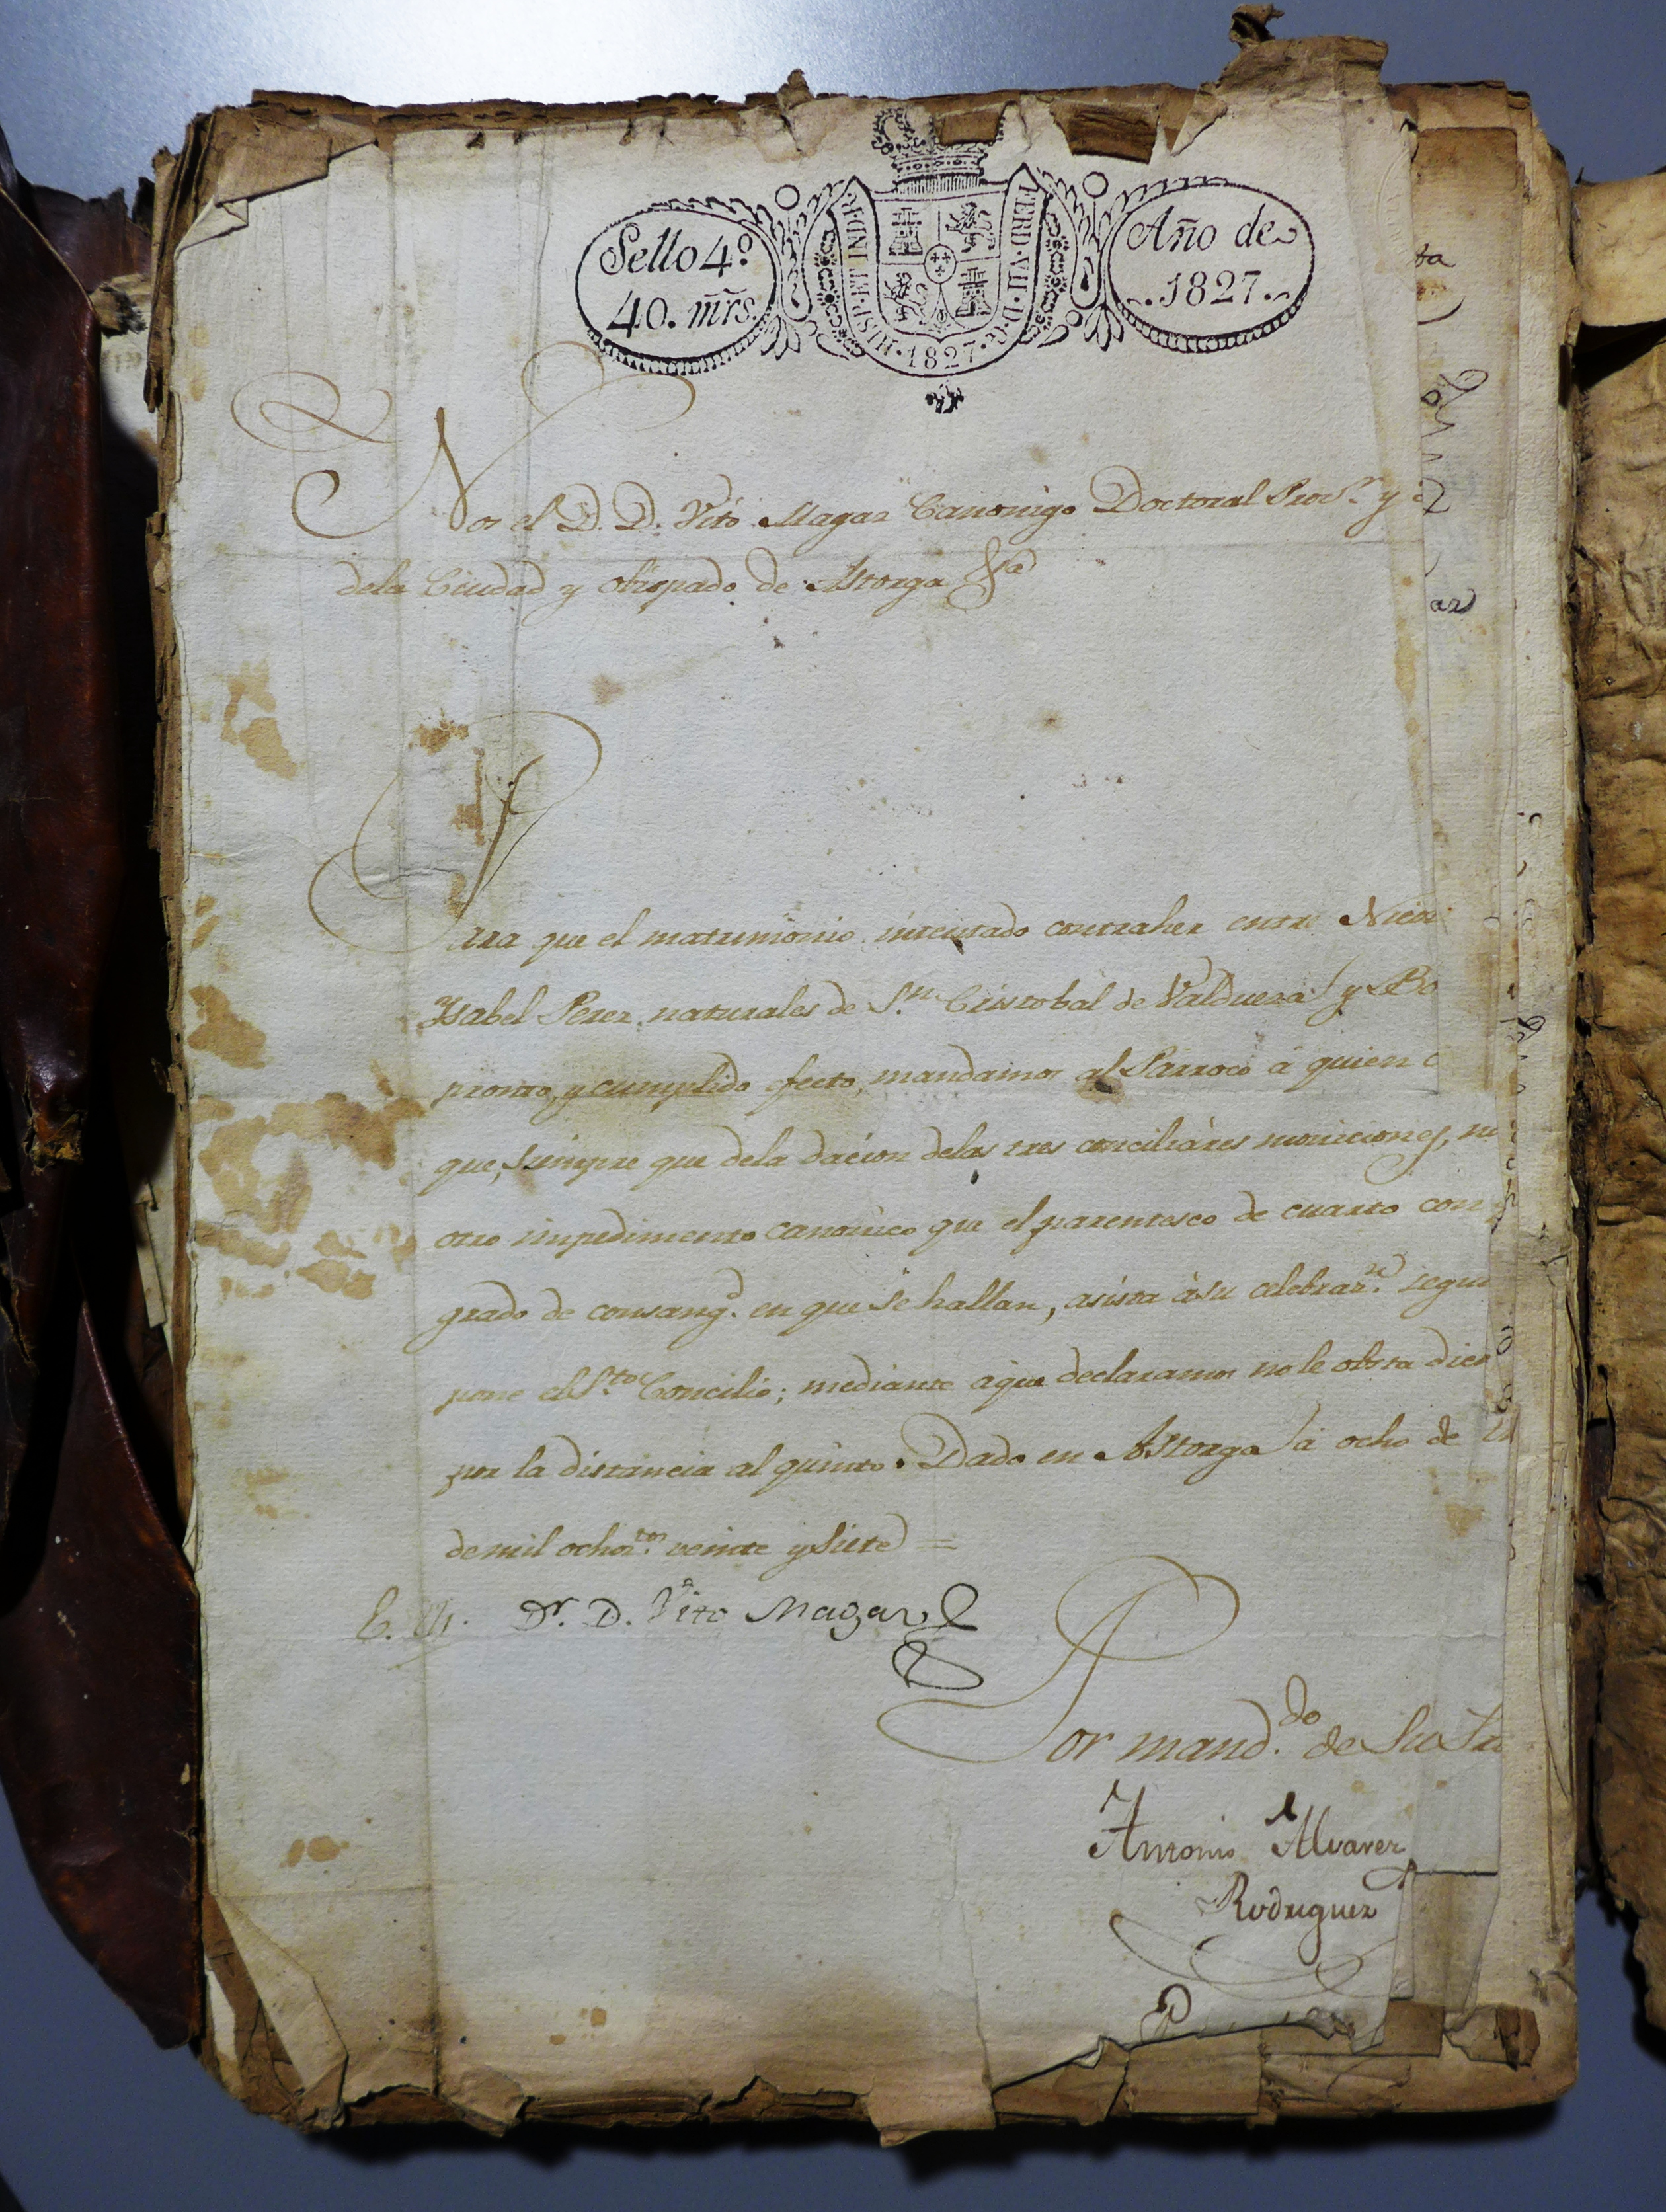 Sello 4º
40. mrs.
HISP. ET IND. R.
FERD. VII. D. G.
1827
Año de
1827.
Nos el D. D. Vito Magaz Canonigo Doctoral Provr. y
dela Ciudad y obispado de Astorga &a
Para que el matrimonio intentado contraher entre Nicol
Ysabel Perez, naturales de Sn. Cristobal de Valdueza y Bo
pronto, y cumplido efecto, mandamos al Parroco á quien c
que, siempre que dela dacion delas tres conciliáres moniciones, no
otro impedimento canonico que el parentesco de cuarto con
grado de consangd. en que se hallan, asista àsu celebrazn. segun
pone el Sto. Concilio; mediante aque declaramos no le obsta dico
por la distancia al quinto. Dado en Astorga á ocho de
de mil ochoztos. veinte y siete =
Dr. D. Vito Magaz
Por mandDo. de Su
Antonio Alvarez
Rodriguez